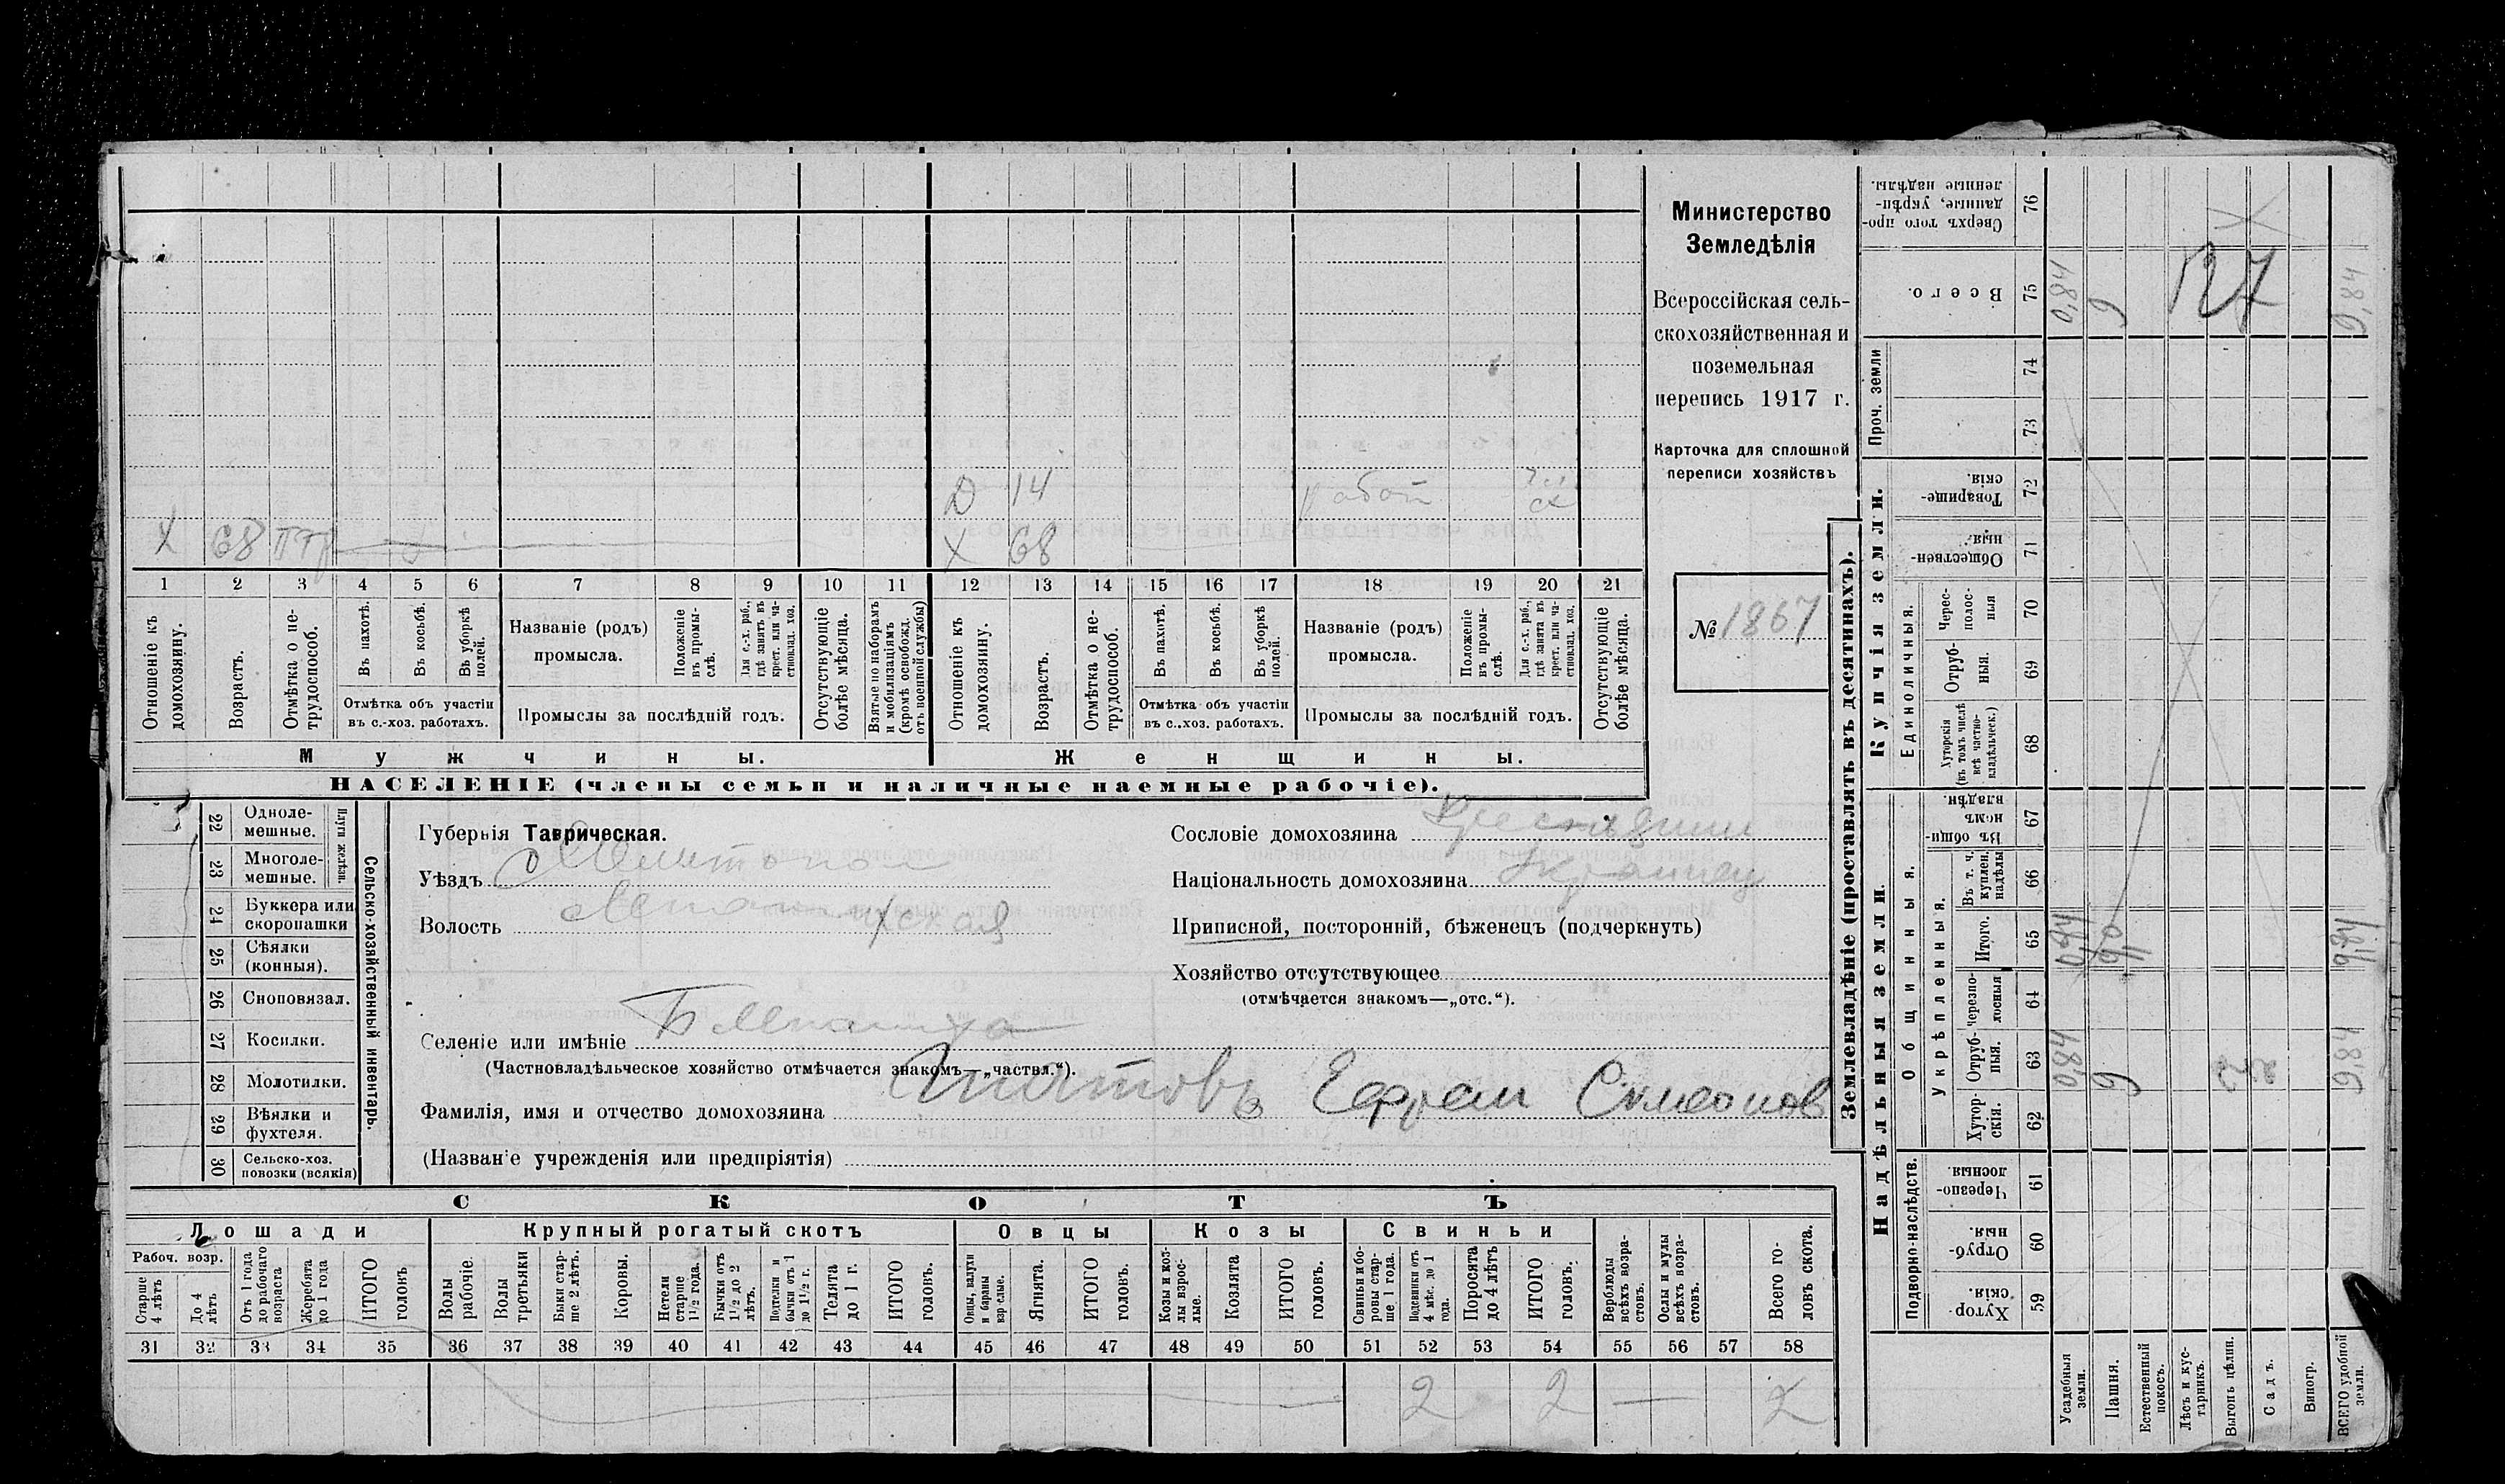 Министерство
Земледѣлія
Всероссійская сель-
скохозяйственная и
поземельная
перепись 1917 г.
Карточка для сплошной
переписи хозяйствъ
№ 1867
Д 14
Х 68
Х 68
1 2 3 4 5 6 7 8 9 10 11 12 13 14 15 16 17 18 19 20 21
Отношеніе къ домохозяину.
Возрастъ.
Отмѣтка о не-трудоспособ.
Въ пахотѣ.
Въ косьбѣ.
Въ уборкѣ полей.
Отмѣтка объ участіи въ с.-хоз. работахъ.
Названіе (родъ) промысла.
Положеніе въ промы-слѣ.
Для с.-х. раб., гдѣ занятъ въ крест. или ча-стновлад. хоз.
Промыслы за послѣдній годъ.
Отсутствующіе болѣе мѣсяца.
Взятые по наборамъ и мобилизаціямъ (кромѣ освобожд. отъ военной службы)
Отношеніе къ домохозяину.
Возрастъ.
Отмѣтка о не-трудоспособ.
Въ пахотѣ.
Въ косьбѣ.
Въ уборкѣ полей.
Отмѣтка объ участіи въ с.-хоз. работахъ.
Названіе (родъ) промысла.
Положеніе въ промы-слѣ.
Для с.-х. раб., гдѣ занята въ крест. или ча-стновлад. хоз.
Промыслы за послѣдній годъ.
Отсутствующіе болѣе мѣсяца.
Мужчины. Женщины.
НАСЕЛЕНІЕ (члены семьи и наличные наемные рабочіе).
22 Одноле-мешные.
23 Многоле-мешные.
Плуги желѣзн.
24 Буккера или скоропашки
25 Сѣялки (конныя).
26 Сноповязал.
27 Косилки.
28 Молотилки.
29 Вѣялки и фухтеля.
30 Сельско-хоз. повозки (всякія)
Сельско-хозяйственный инвентарь.
Губернія Таврическая.
Уѣздъ Мелитопол
Волость
Селеніе или имѣніе
(Частновладѣльческое хозяйство отмѣчается знакомъ—„частвл.“).
Фамилія, имя и отчество домохозяина Ипатовъ Ефрем Симеонов
(Названіе учрежденія или предпріятія)
Сословіе домохозяина Крестьянин
Національность домохозяина Украинец
Приписной, посторонній, бѣженецъ (подчеркнуть)
Хозяйство отсутствующее
(отмѣчается знакомъ—„отс.“).
СКОТЪ
Лошади Крупный рогатый скотъ Овцы Козы Свиньи
Рабоч. возр.
Старше 4 лѣтъ
До 4 лѣтъ
Отъ 1 года до рабочаго возраста
Жеребята до 1 года
ИТОГО головъ
Волы рабочіе.
Волы третьяки
Быки стар-ше 2 лѣтъ.
Коровы.
Нетели старше 1½ года.
Бычки отъ 1½ до 2 лѣтъ.
Подтелки и бычки отъ 1 до 1½ г.
Телята до 1 г.
ИТОГО головъ.
Овцы, валухи и бараны взрослые.
Ягнята.
ИТОГО головъ.
Козы и коз-лы взрос-лые.
Козлята
ИТОГО головъ.
Свиньи и бо-ровы стар-ше 1 года.
Подсвинки отъ 4 мѣс. до 1 года.
Поросята до 4 лѣтъ
ИТОГО головъ.
Верблюды всѣхъ возра-стовъ.
Ослы и мулы всѣхъ возра-стовъ.
Всего го-ловъ скота.
31 32 33 34 35 36 37 38 39 40 41 42 43 44 45 46 47 48 49 50 51 52 53 54 55 56 57 58
2 2 — 2
Землевладѣніе (проставлять въ десятинахъ).
Надѣльныя земли.
Купчія земли.
Проч. земли
Подворно-наслѣдств.
Общинныя.
Укрѣпленныя.
Единоличныя.
Хутор-скія. 59
Отруб-ныя. 60
Черезпо-лосныя. 61
Хутор-скія. 62
Отруб-ныя. 63
черезпо-лосныя 64
Итого. 65
Въ т. ч. куплен. надѣлы 66
Въ общи-номъ владѣн. 67
Хуторскія (въ томъ числѣ всѣ частно-владѣльческ.) 68
Отруб-ныя. 69
Черес-полос-ныя 70
Обществен-ныя. 71
Товарище-скія. 72
73
74
Всего. 75
Сверхъ того про-данные, укрѣп-ленные надѣлы. 76
Усадебныя земли. 0,84 0,84 0,84
Пашня. 9 9,0 9
Естественный покосъ.
Лѣсъ и кус-тарникъ.
Выгонъ цѣлин.
Садъ.
Виногр.
ВСЕГО удобной земли. 9,84 9,84 9,84
127